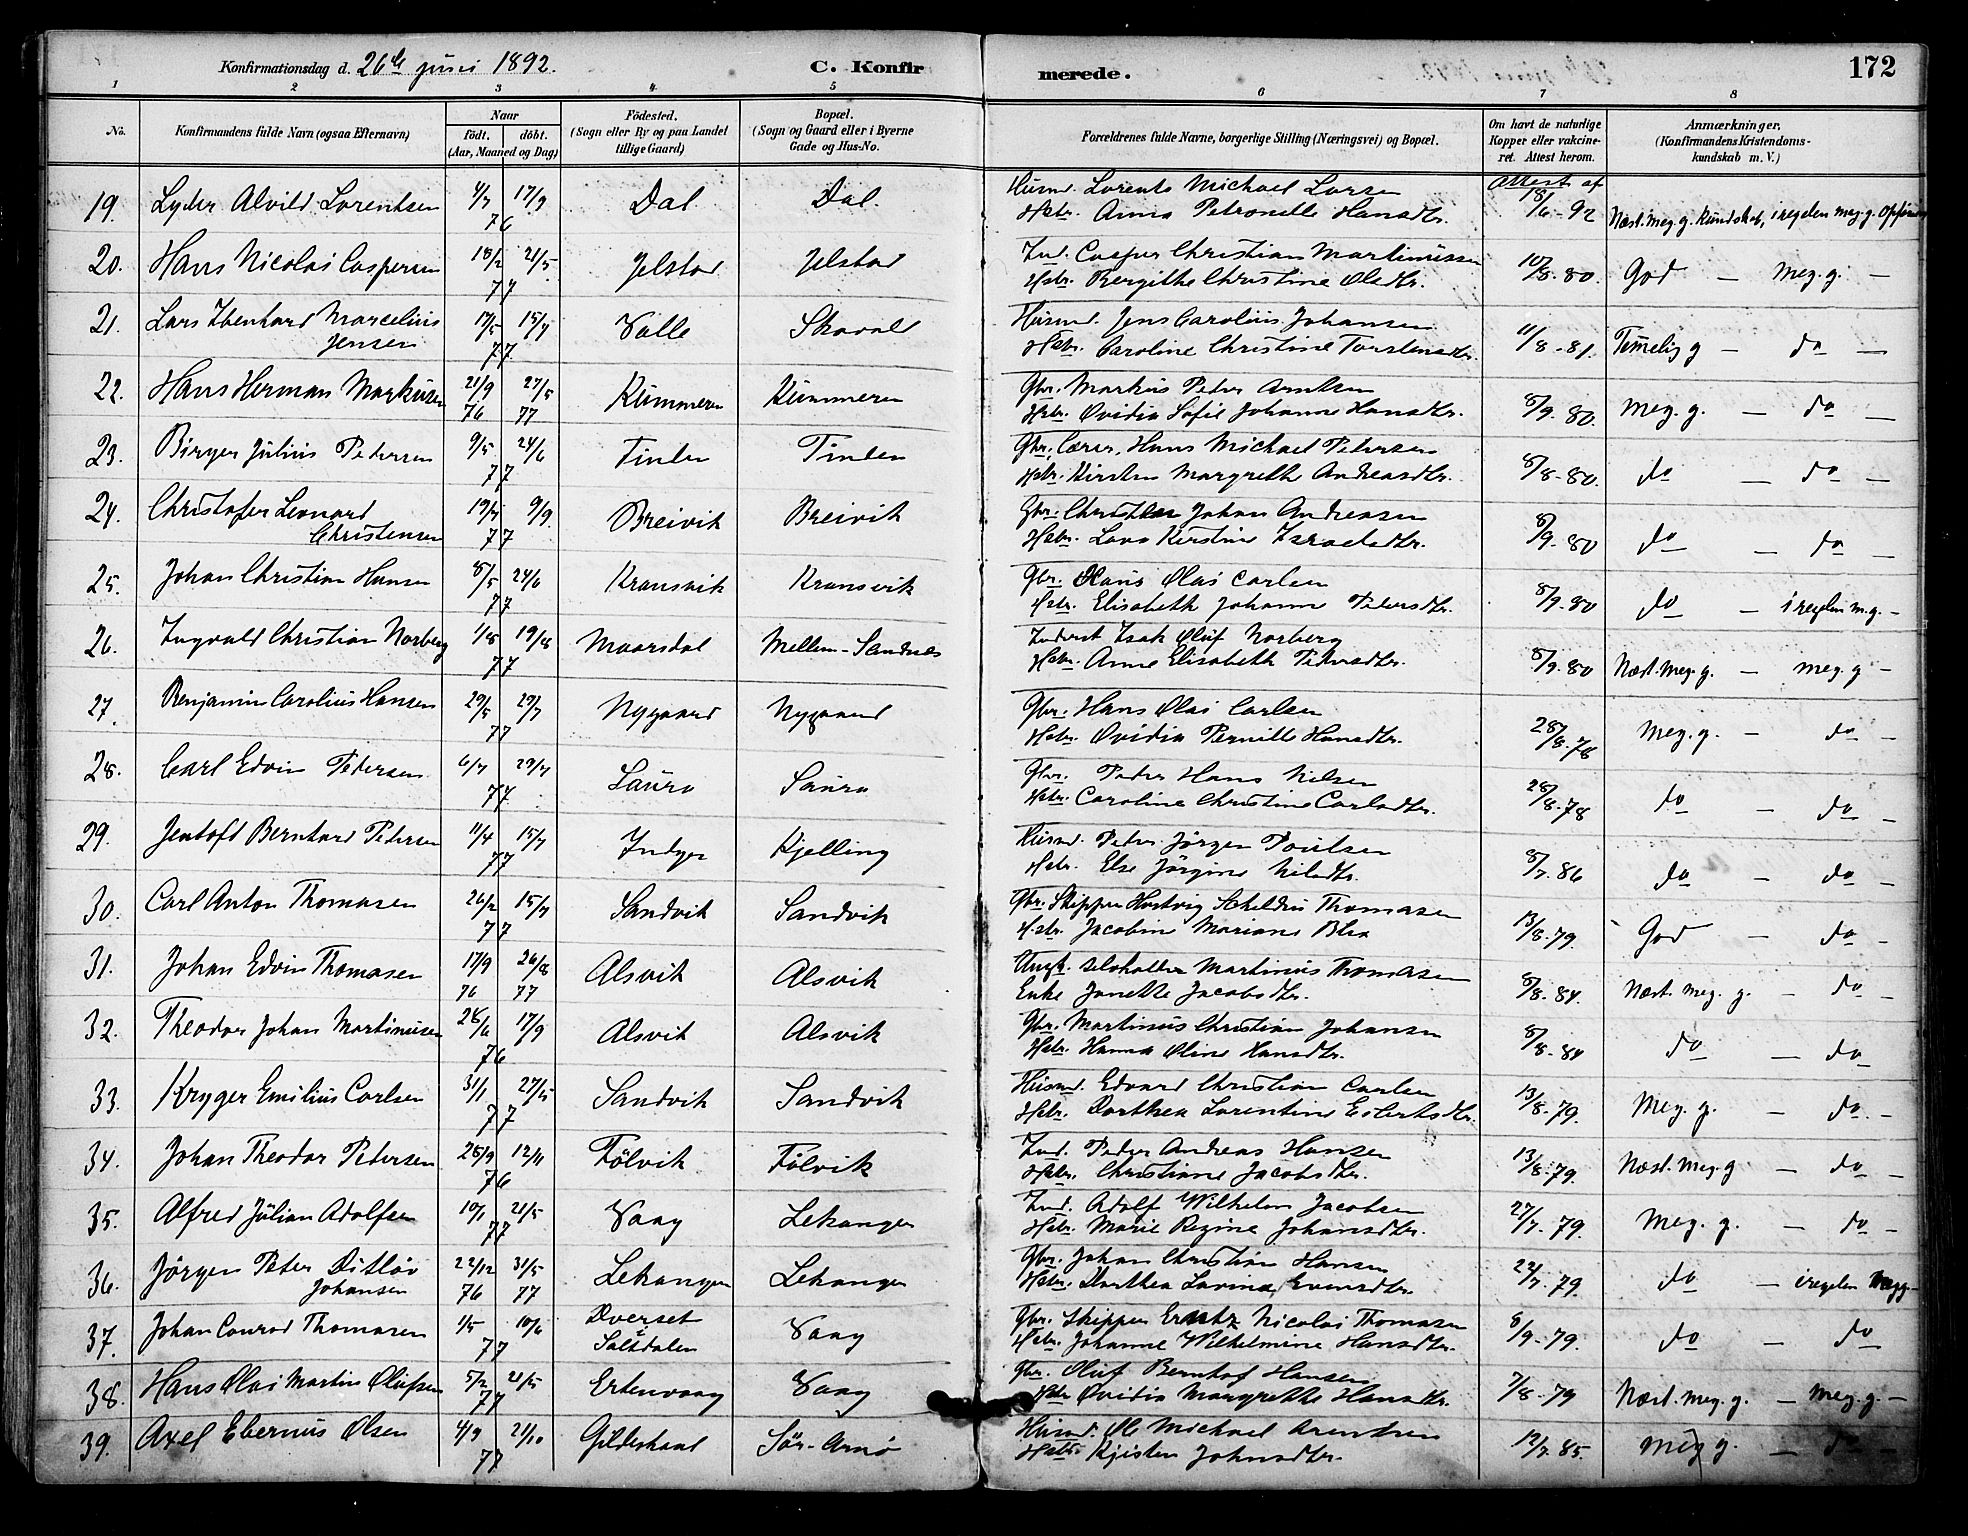 172
Konfirmationsdag d. 26de juni 1892. C. Konfirmerede.
1 2 3 4 5 6 7 8
No. Konfirmandens fulde Navn (ogsaa Efternavn) Naar født. døbt. (Aar, Maaned og Dag) Fødested. (Sogn eller By og paa Landet tillige Gaard) Bopæl. (Sogn og Gaard eller i Byerne Gade og Hus-No. Forældrenes fulde Navne, borgerlige Stilling (Næringsvei) og Bopæl. Om havt de naturlige Kopper eller vakcineret. Attest herom. Anmærkninger. (Konfirmandens Kristendomskundskab m. V.)
19. Lyder Alvild Lorentsen 4/7 17/9 76 Dal Dal Husmd. Lorents Michael Larsen Attest af 18/6-92
Hstr. Anna Petronelle Hansdtr. Næst. meg. g. kundskab, i regelen meg. g. Opførsel
20. Hans Nicolai Caspersen 18/2 21/5 77 Jelstad Jelstad Ind. Casper Christian Martinussen 10/8-80. God — meg. g. —
Hstr. Bergithe Christine Olsdtr.
21. Lars Ebenhard Marcelius 17/5 15/7 77 Valle Skavald Husmd. Jens Carolius Johansen 11/8-81. Temmelig g — do —
Jensen Hstr. Caroline Christine Torstensdtr.
22. Hans Herman Markusen 21/9 76 27/5 77 Kummeren Kummeren Gbr. Markus Peter Arntsen 8/9.80. Meg. g. — do —
Hstr. Ovidia Sofie Johanna Hansdtr.
23. Birger Julius Petersen 9/5 24/6 77 Finden Tinden Gbr. Lærer, Hans Michael Petersen 8/8-80. do — do —
Hstr. Kirsten Margrethe Andreasdtr.
24. Christofer Leonard 19/7 9/9. 77 Breivik Breivik Gbr. Christian Johan Andreasen 8/9.80 do — do —
Christensen Hstr. Lava Kirstine Israelsdtr.
25. Johan Christian Hansen 8/5 24/6 77 Kransvik Kransvik Gbr. Hans Olai Carlsen 8/9.80 do — i regelen m.g. —
Hstr. Elisabeth Johanna Petersdtr.
26. Ingvald Christian Norberg 1/8 19/8 77 Maarsdal Mellem-Sandnes Inderst Isak Oluf Norberg 8/9.80 Næst. meg. g. — meg. g —
Hstr. Anne Elisabeth Petersdtr.
27. Benjamin Carolius Hansen 29/5 29/7 77 Nygaard Nygaard Gbr. Hans Olai Carlsen 28/8.78 Meg. g. — do —
Hstr. Ovidia Pernille Hansdtr.
28. Carl Edvin Petersen 6/7 29/7 77 Saura Saura Gbr. Peder Hans Nielsen 28/8.78 do — do —
Hstr. Caroline Christine Carlsdtr.
29. Jentoft Bernhard Petersen 11/4 15/7 77 Indyr Kjelling Husmd. Peter Jörgen Poulsen 8/7.86 do — do —
Hstr. Else Jörgine Nilsdtr.
30. Carl Anton Thomasen 26/2 15/7 77 Sandvik Sandvik Gbr. Skipper Hartvig Scheldru Thomasen 13/8.79. God — do —
Hstr. Jacobine Mariane Blix
31. Johan Edvin Thomasen 17/9 76 26/8 77 Alsvik Alsvik Martinus Thomasen 8/8.84. Næst. meg. g. — do —
Enke Janette Jacobsdtr.
32. Theodor Johan Martinusen 28/6 17/9 76 Alsvik Alsvik Gbr. Martinus Christian Johansen 8/8-84 do — do —
Hstr. Hanna Oline Hansdtr.
33. Kryger Emilius Carlsen 31/1 27/5 77 Sandvik Sandvik Husmd. Edvard Christian Carlsen 13/8-79. Meg. g. — do —
Hstr. Dorthea Lorentine Eilertsdtr.
34. Johan Theodor Petersen 28/9 12/11 76 Fölvik Fölvik Ind. Peder Andreas Hansen 13/8.79 Næst. meg. g — do —
Hstr. Christiane Jacobsdtr.
35. Alfred Julian Adolfsen 10/1 21/5 77 Vaag Lekanger Ind. Adolf Wilhelm Jacobsen 27/7.79. Meg. g. — do —
Hstr. Marie Regine Johansdtr.
36. Jörgen Peter Ditløv 22/12 76 31/5 77 Lekanger Lekanger Gbr. Johan Christian Hansen 22/7.79. do — i regelen
Johansen Hstr. Dorthea Lavina Evensdtr.
37. Johan Conrad Thomasen 1/5 10/6 77 Dverset Saltdalen Vaag Gbr. Skipper Nicolai Thomasen 8/9-79. do — do
Hstr. Johanne Wilhelmine Hansdtr.
38. Hans Olai Martin Olufsen 5/2 21/5 77 Ertenvaag Vaag Gbr. Oluf Berntof Hansen 7/8-79 Næst. meg. g. — meg. g. —
Hstr Ovidia Margrethe Hansdtr.
39. Axel Ebernus Olsen 4/9 21/10 77 Gildeskaal Sör-Arnö Husmd. Ole Michael Arentsen 12/7.85. Meg g. — do —
Hstr Kjisten Johnsdtr.